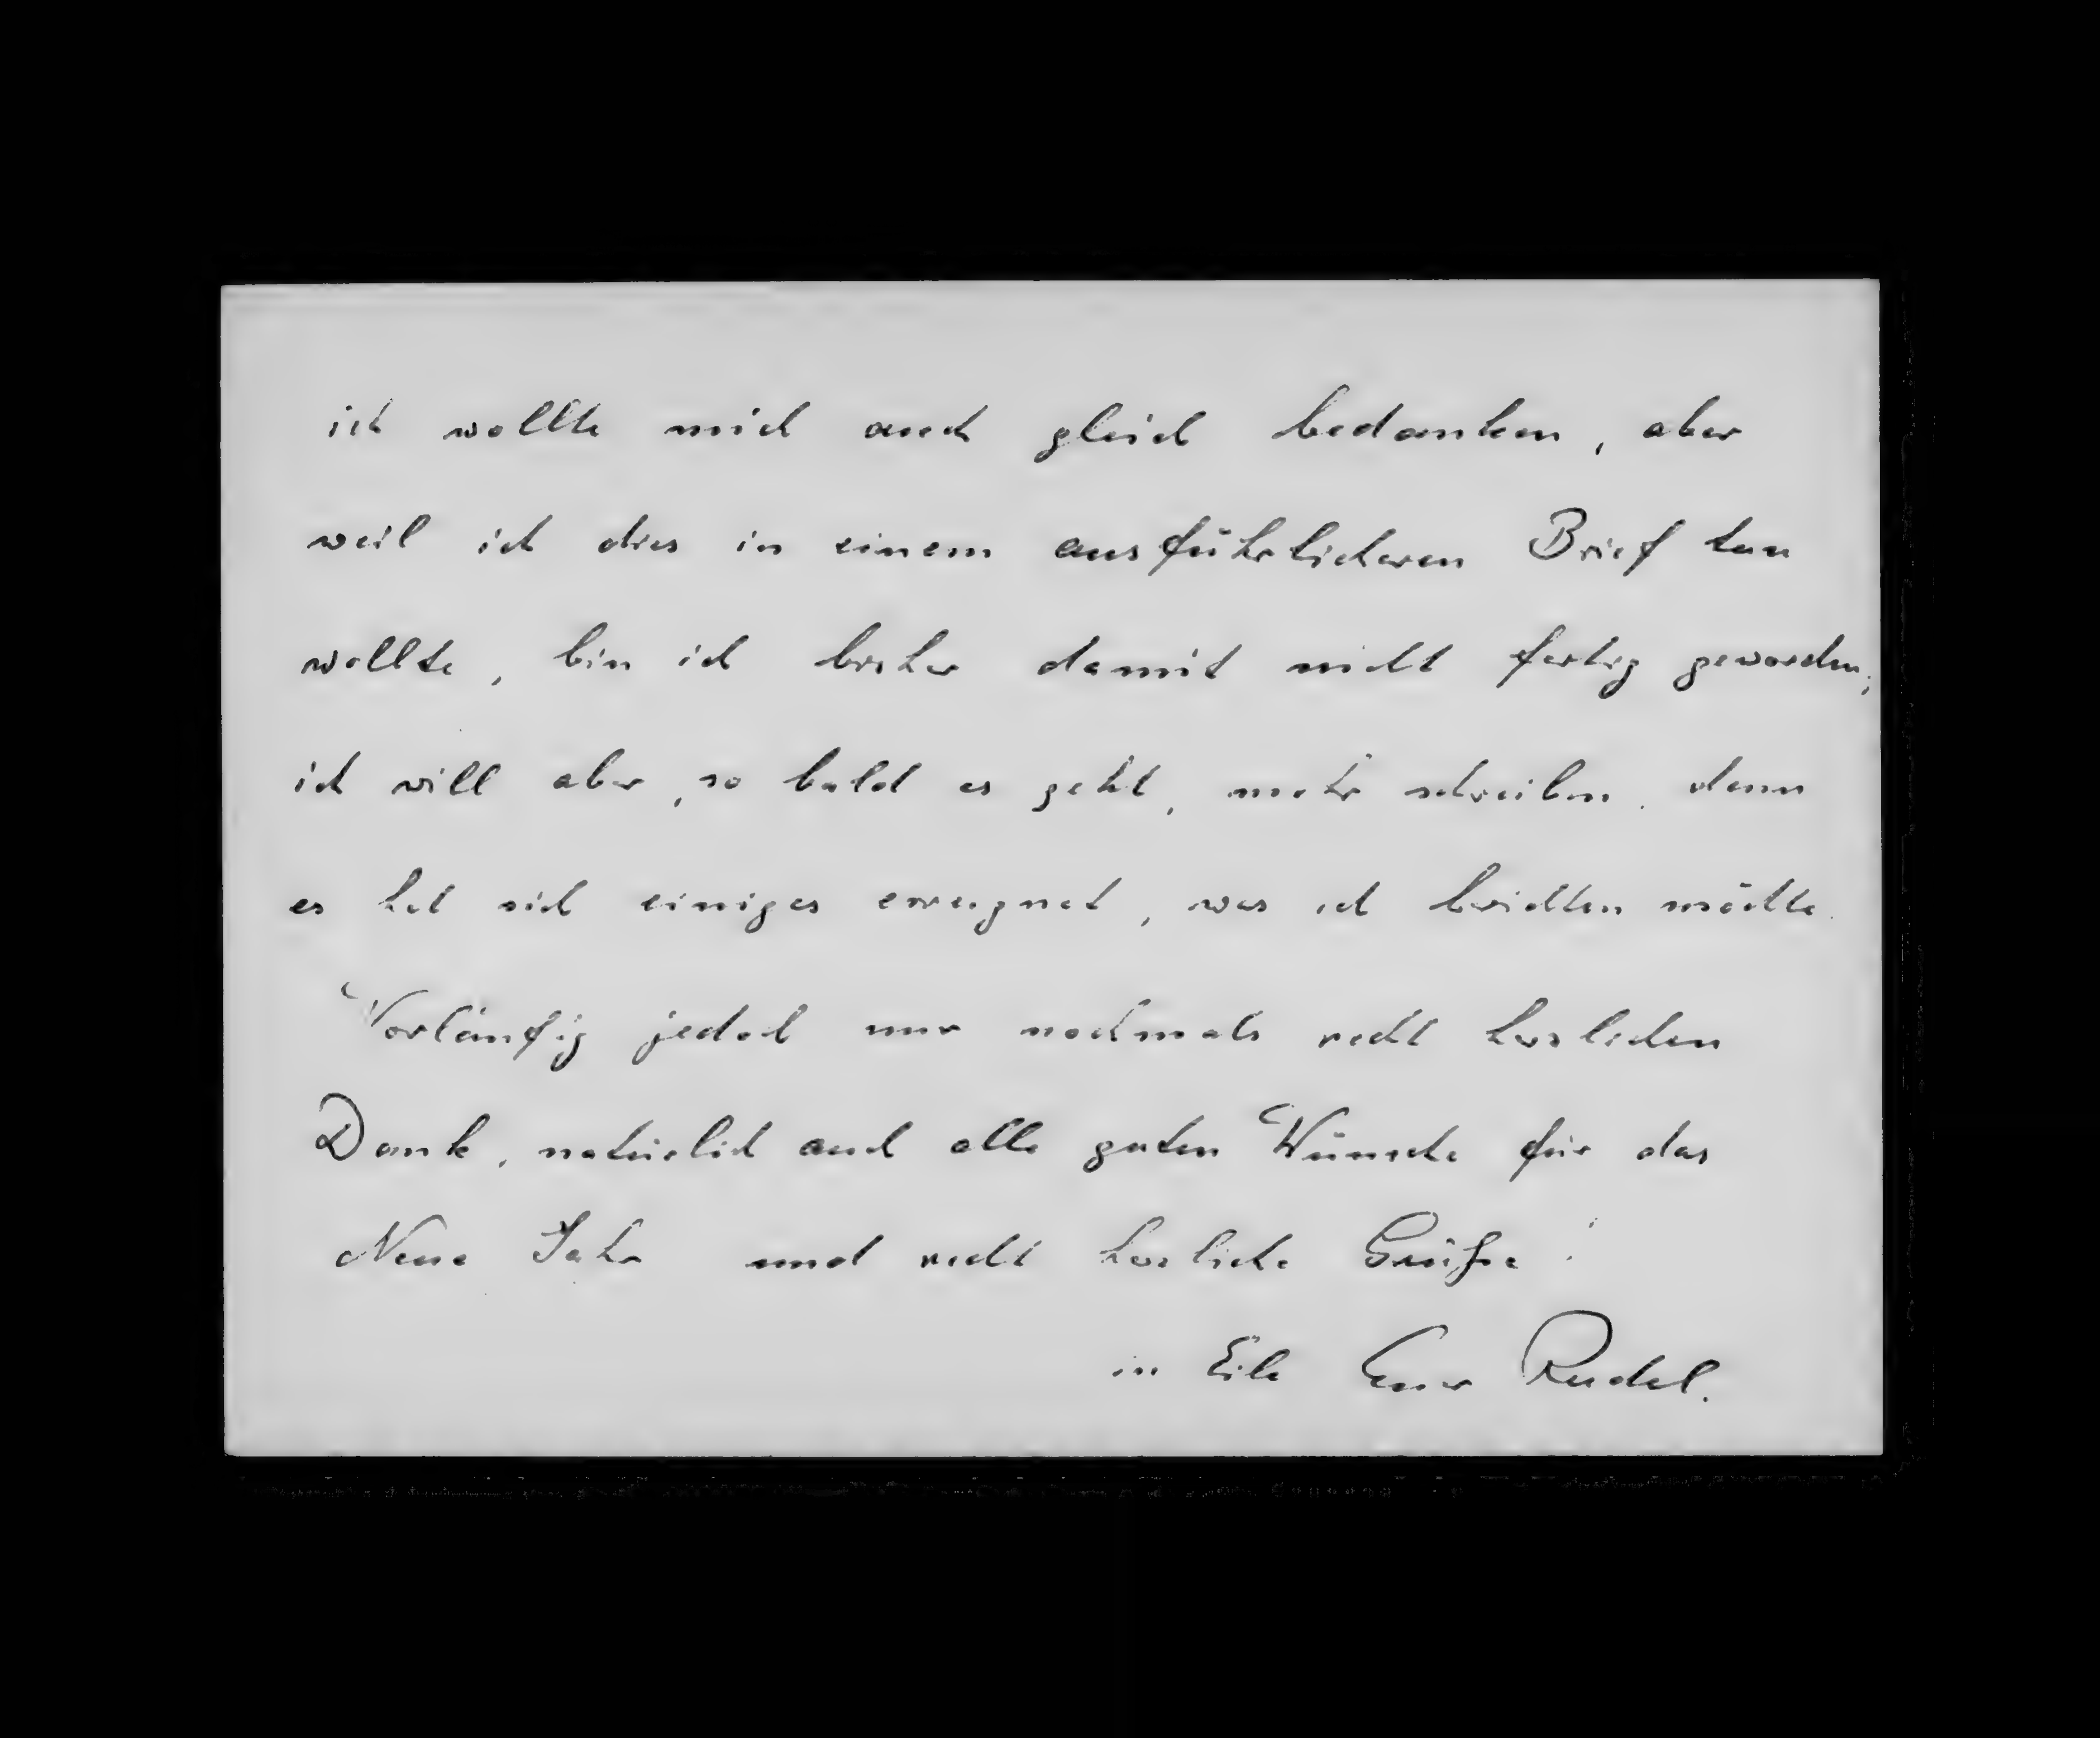 ich wollte mich auch gleich bedanken, aber
weil ich dies in einem ausführlicheren Brief tun
wollte, bin ich bisher damit nicht fertig geworden;
ich will aber, so bald es geht, mehr schreiben. denn
es hat sich einiges ereignet, was ich berichten möchte.
Vorläufig jedoch nur nochmals recht herzlichen
Dank, natürlich auch alle guten Wünsche für das
Neue Jahr und recht herzliche Grüße!
in Eile Euer Rudel.